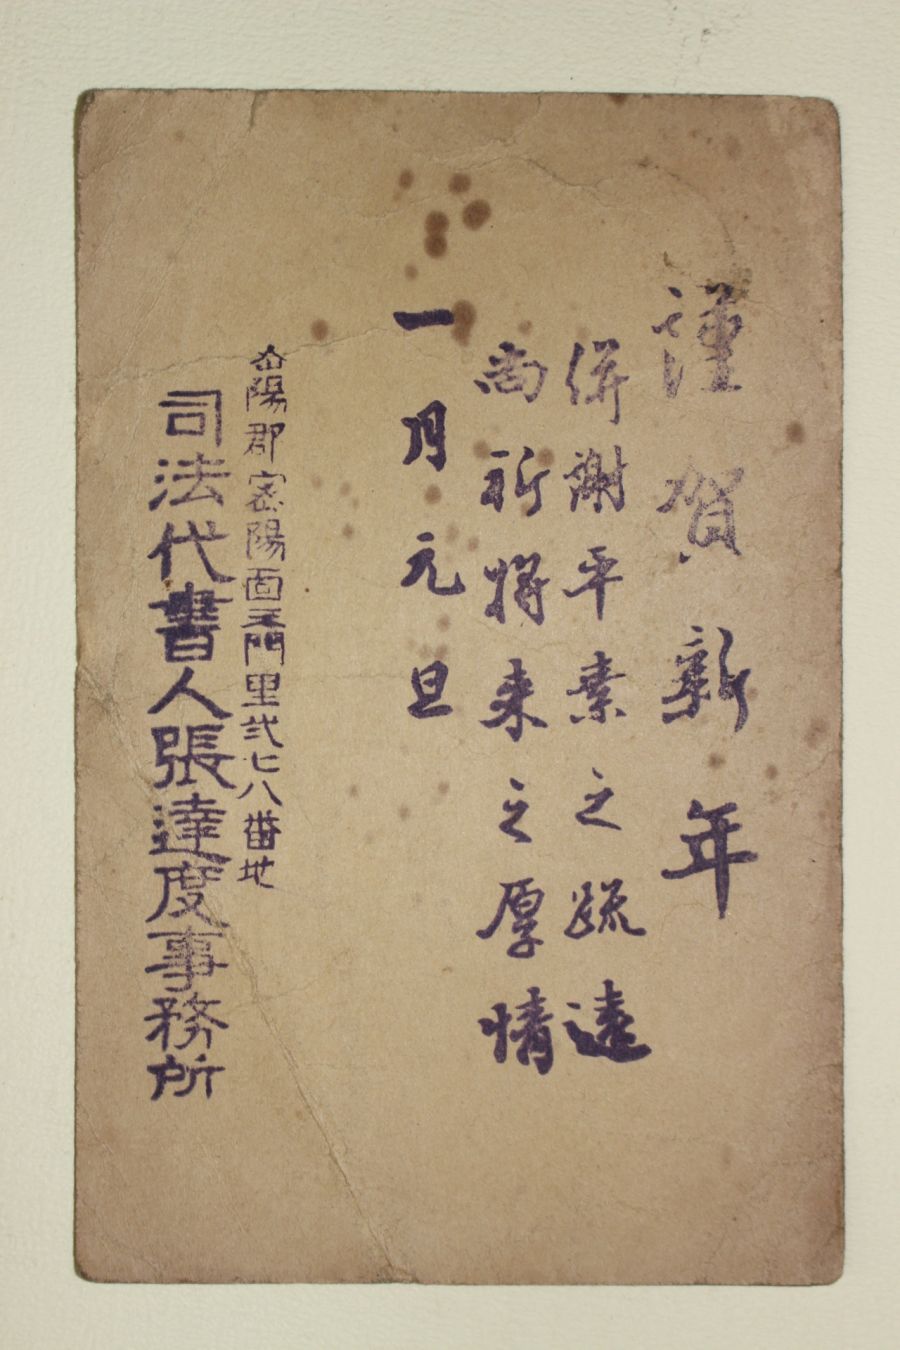 謹賀新年
併謝平素之疏遠
尚祈将来之厚情
一月元旦
密陽郡密陽面三門里弐七八番地
司法代書人張達度事務所